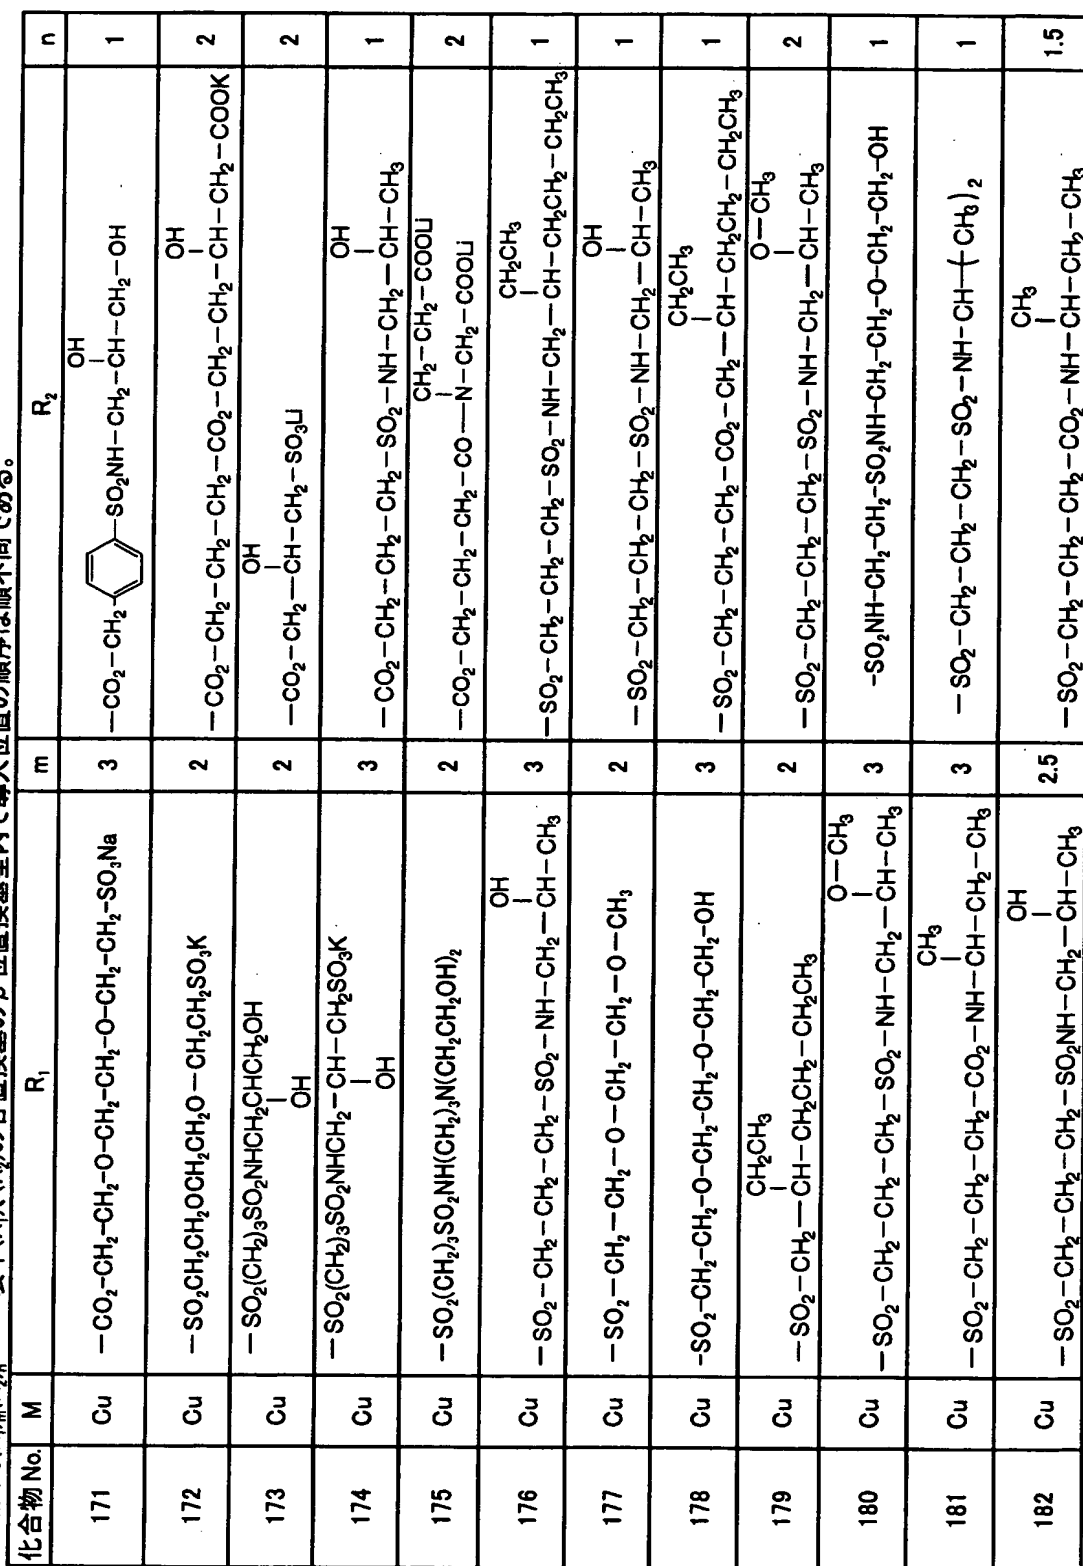 の各置換基のβ位置換基型内で導入位置の順序は順不同である。
化合物 No. M R₁ m R₂ n
171 Cu —CO₂-CH₂-CH₂-O-CH₂-CH₂-O-CH₂-CH₂-SO₃Na 3 —CO₂—CH₂—⌬—SO₂NH—CH₂—CH(OH)—CH₂—OH 1
172 Cu —SO₂CH₂CH₂OCH₂CH₂O—CH₂CH₂SO₃K 2 —CO₂—CH₂—CH₂—CH₂—CO₂—CH₂—CH₂—CH(OH)—CH₂—COOK 2
173 Cu —SO₂(CH₂)₃SO₂NHCH₂CH(OH)CH₂OH 2 —CO₂—CH₂—CH(OH)—CH₂—SO₃Li 2
174 Cu —SO₂(CH₂)₃SO₂NHCH₂—CH(OH)—CH₂SO₃K 3 —CO₂—CH₂—CH₂—CH₂—SO₂—NH—CH₂—CH(OH)—CH₃ 1
175 Cu —SO₂(CH₂)₃SO₂NH(CH₂)₃N(CH₂CH₂OH)₂ 2 —CO₂—CH₂—CH₂—CH₂—CO—N(CH₂—CH₂—COOLi)—CH₂—CH₂—COOLi 2
176 Cu —SO₂—CH₂—CH₂—CH₂—SO₂—NH—CH₂—CH(OH)—CH₃ 3 —SO₂—CH₂—CH₂—CH₂—SO₂—NH—CH₂—CH(CH₂CH₃)—CH₂CH₂—CH₂CH₃ 1
177 Cu —SO₂—CH₂—CH₂—CH₂—O—CH₂—CH₂—O—CH₃ 2 —SO₂—CH₂—CH₂—CH₂—SO₂—NH—CH₂—CH(OH)—CH₃ 1
178 Cu -SO₂-CH₂-CH₂-O-CH₂-CH₂-O-CH₂-CH₂-OH 3 —SO₂—CH₂—CH₂—CH₂—CO₂—CH₂—CH(CH₂CH₃)—CH₂CH₂—CH₂CH₃ 1
179 Cu —SO₂—CH₂—CH(CH₂CH₃)—CH₂CH₂—CH₂CH₃ 2 —SO₂—CH₂—CH₂—CH₂—SO₂—NH—CH₂—CH(O—CH₃)—CH₃ 2
180 Cu —SO₂—CH₂—CH₂—CH₂—SO₂—NH—CH₂—CH(O—CH₃)—CH₃ 3 -SO₂NH-CH₂-CH₂-SO₂NH-CH₂-CH₂-O-CH₂-CH₂-OH 1
181 Cu —SO₂—CH₂—CH₂—CH₂—CO₂—NH—CH(CH₃)—CH₂—CH₃ 3 —SO₂—CH₂—CH₂—CH₂—SO₂—NH—CH—(CH₃)₂ 1
182 Cu —SO₂—CH₂—CH₂—CH₂—SO₂NH—CH₂—CH(OH)—CH₃ 2.5 —SO₂—CH₂—CH₂—CH₂—CO₂—NH—CH(CH₃)—CH₂—CH₃ 1.5